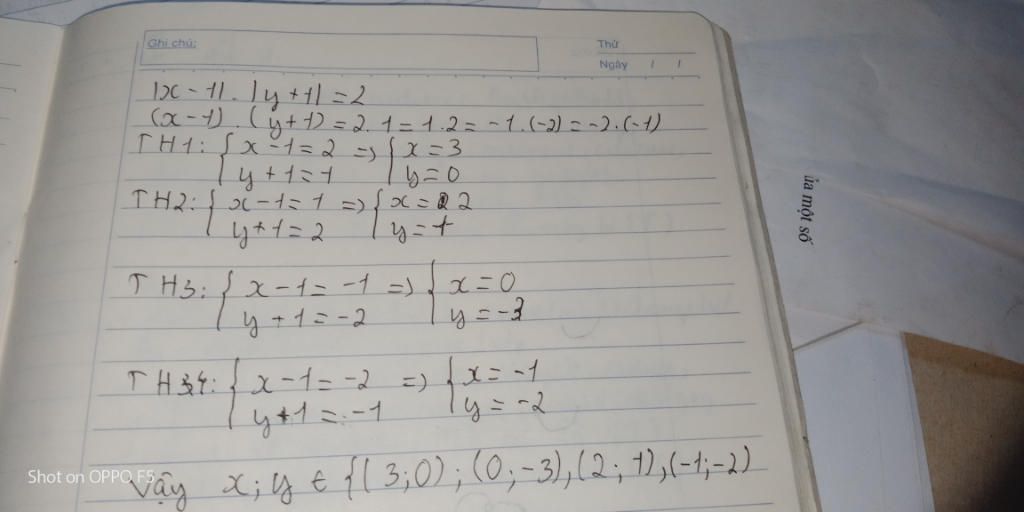 Ghi chú:
Thứ
Ngày / /
|x - 1| . |y + 1| = 2
(x - 1) . (y + 1) = 2 . 1 = 1 . 2 = -1 . (-2) = -2 . (-1)
TH1: { x - 1 = 2 => { x = 3
y + 1 = 1 y = 0
TH2: { x - 1 = 1 => { x = 2
y + 1 = 2 y = 1
TH3: { x - 1 = -1 => { x = 0
y + 1 = -2 y = -3
TH4: { x - 1 = -2 => { x = -1
y + 1 = -1 y = -2
Vậy x; y ∈ {(3; 0); (0; -3), (2; 1), (-1; -2)
ủa một số
Shot on OPPO F5